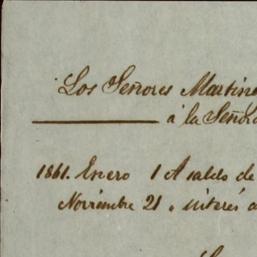 Los Señores Martin
á la Señor
1861. Enero 1 A saldo de
Noviembre 21 " interés a